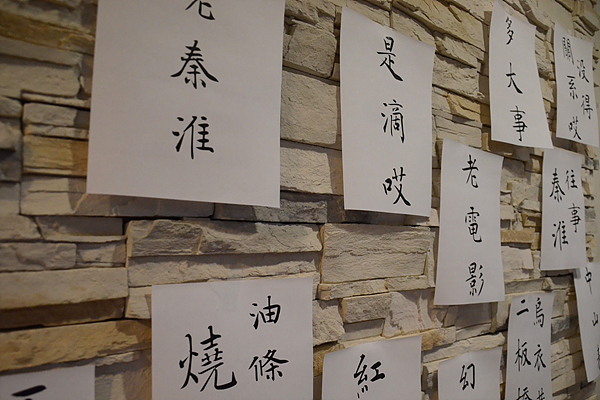 老秦淮
是滴哎
多大事
没得
關系哎
老電影
往事
秦淮
油條
燒
紅
幻
烏衣
二板橋
中山